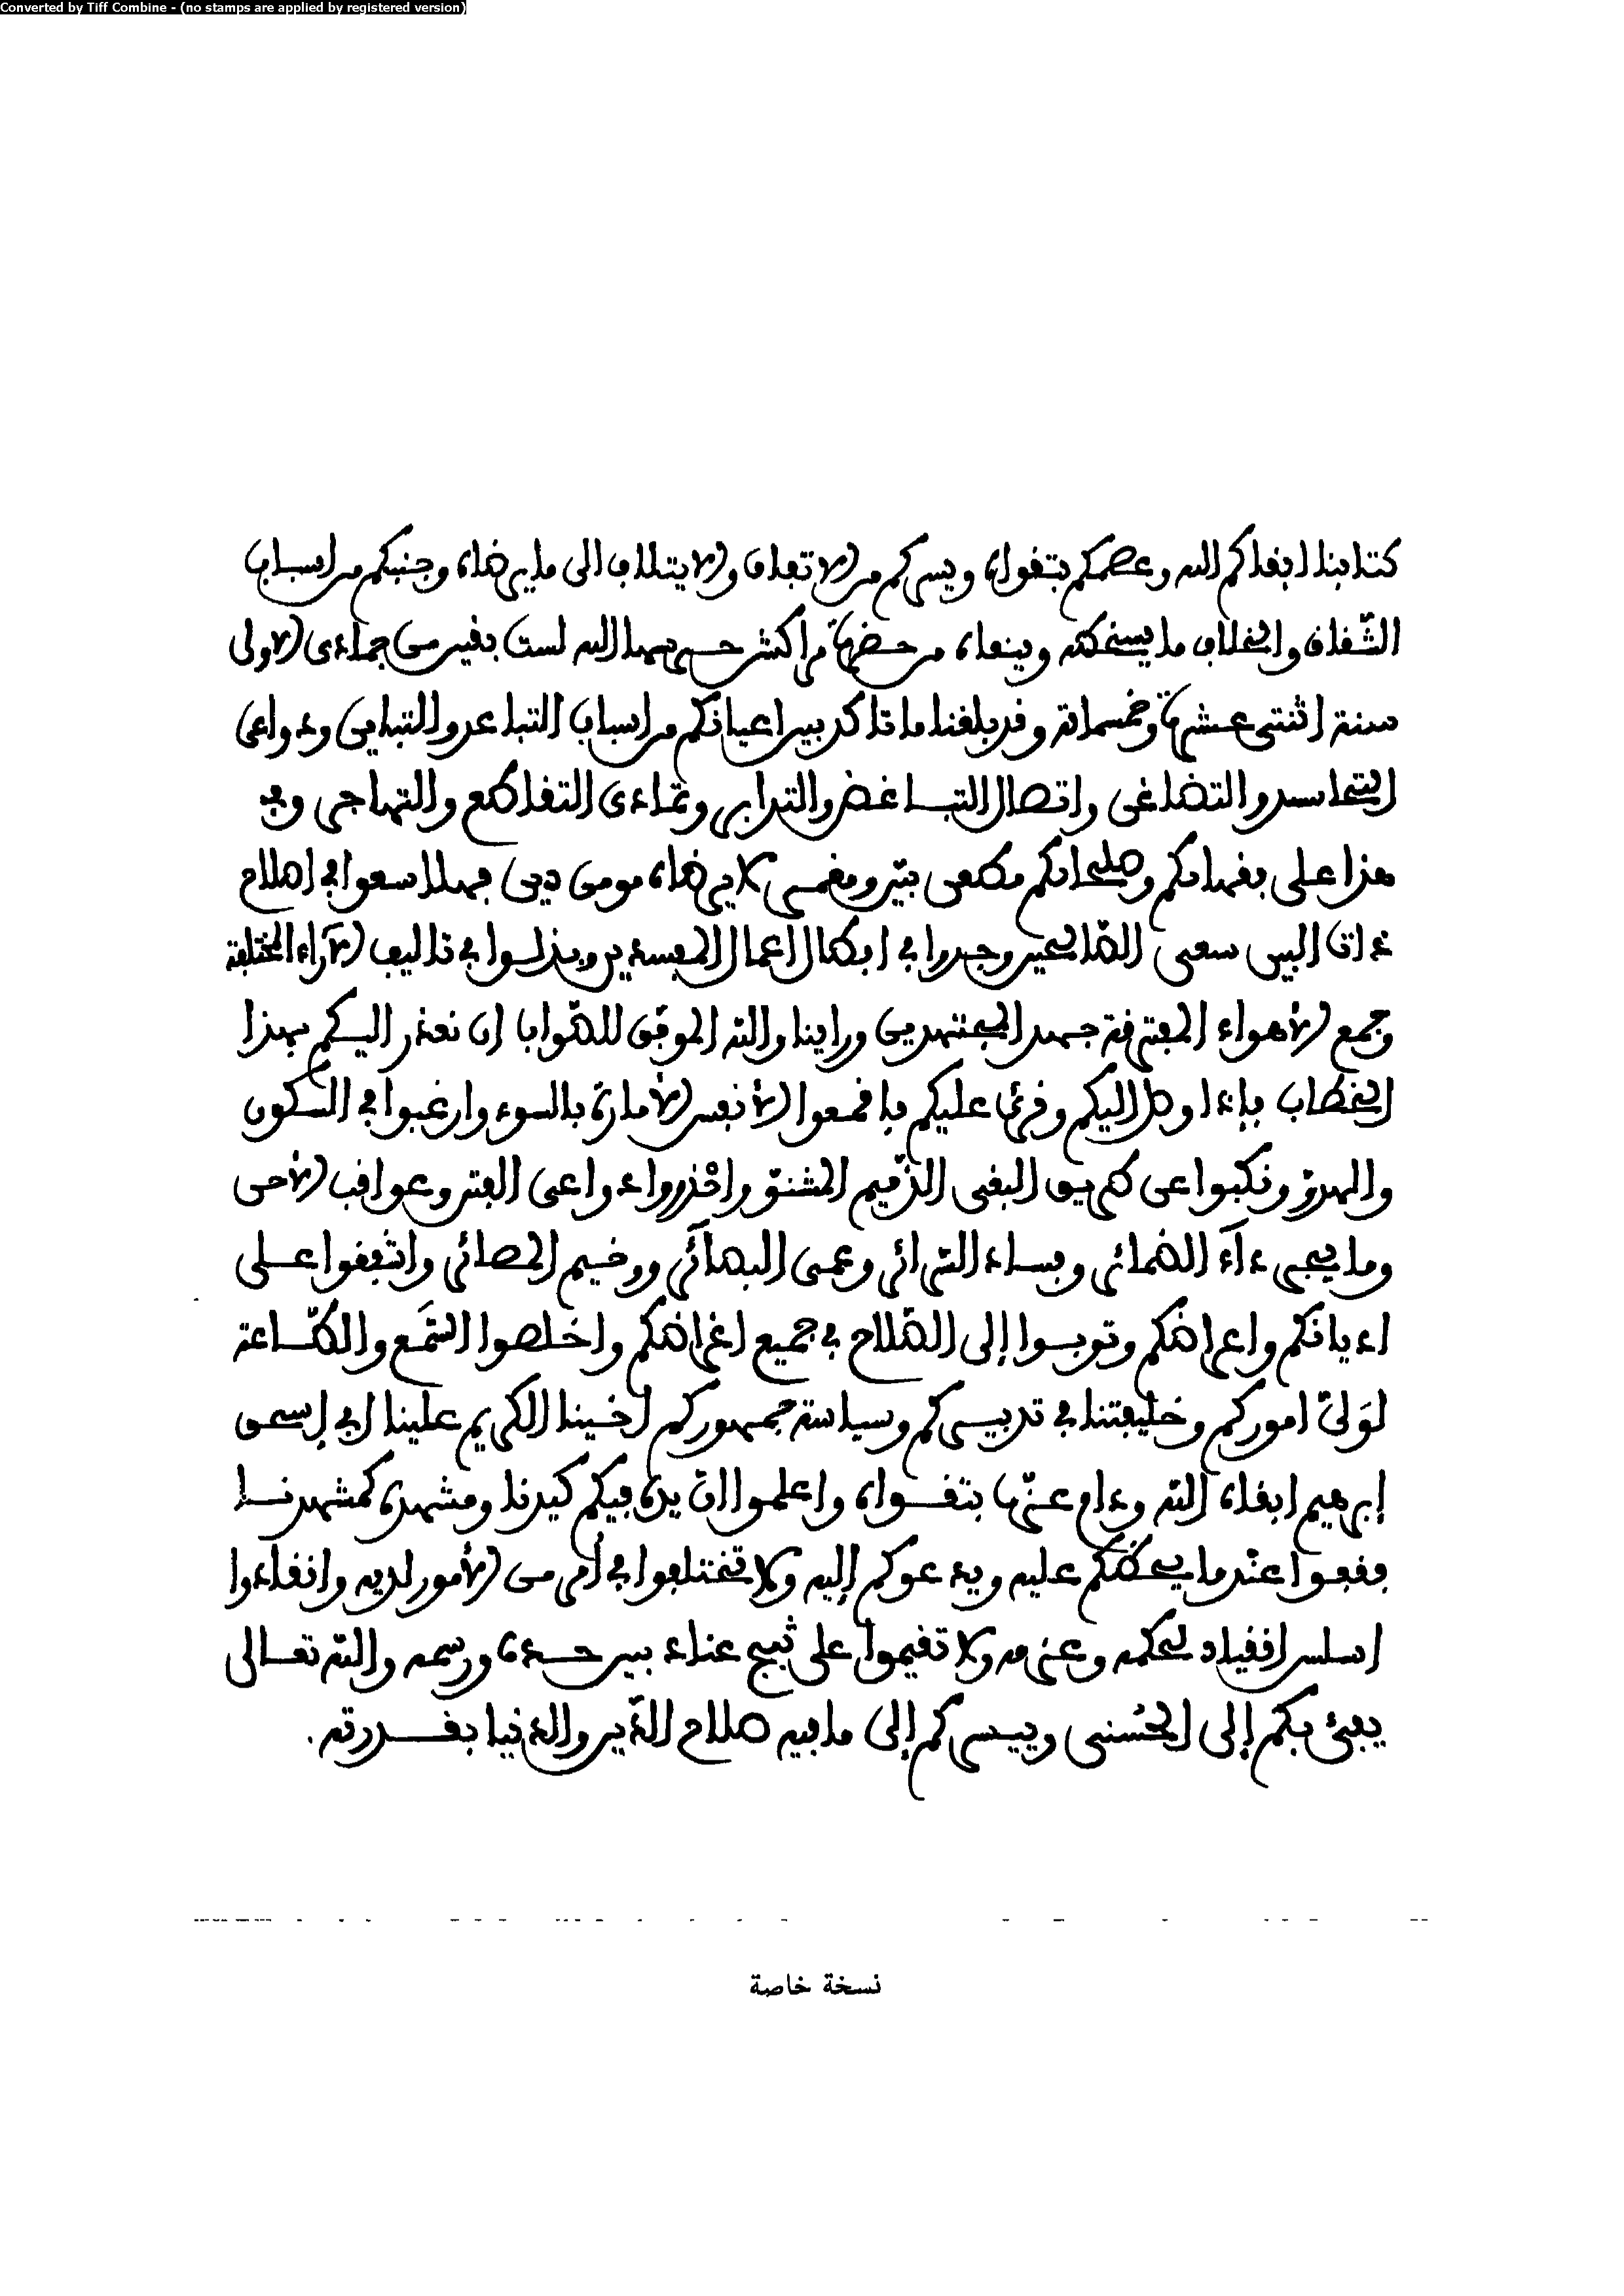 Converted by Tiff Combine - (no stamps are applied by registered version)
كتابنا ابقاكم الله وعصمكم بتقواه ويسركم من الاتفاق والايتلاف الى ما يرضاه وجنبكم من اسباب
الشّقاق والخلاف ما يسخطه وينعاه من حضرة مراكش حرسها الله لست بقين من جمادى الاولى
سنة اثنتى عشرة وخمسمائة وقد بلغنا ما تاكد بين اعيانكم من اسباب التباعد والتباين ودواعى
التحاسد والتضاغن واتصال التباغض والتدابر وتمادى التقاطع والتهاجر وفى
هذا على فقهائكم وصلحائكم مطعن بيّن ومغمز لا يرضاه مومن دين فهلا سعوا فى اصلاح
ذات البين سعى الصّالحين وجدوا فى ابطال اعمال المفسدين وبذلوا فى تاليف الآراء المختلفة
وجمع الأهواء المفترقة جهد المجتهدين وراينا والله الموفق للصّواب ان نعذر اليكم بهذا
الخطاب فإذا وصل اليكم وقرئ عليكم فاقمعوا الأنفس الأمارة بالسوء وارغبوا فى السكون
والهدوّ ونكبوا عن طريق البغى الذّميم المشنوّ واحْذروا دواعى الفتن وعواقب الأحن
وما يجنى داء الضمائر وفساد السّرائر وعمى البصائر ووخيم المصائر واشفقوا على
اديانكم واعراضكم وتوبوا إلى الصّلاح فى جميع اغراضكم واخلصوا السَّمع والطّاعة
لوَلىّ اموركم وخليفتنا فى تدبيركم وسياسة جمهوركم أخينا الكريم علينا ابى إسحق
إبرهيم ابقاه اللّه ودام عزّه بتقواه واعلموا انّ يده فيكم كيدنا ومشهده كمشهدنا
فقفوا عنْد ما يحظكم عليه ويدعوكم إليه ولا تختلفوا فى أمر من الأمور لديه وانقادوا
اسلس انقياد لحكمه وعزمه ولا تقيموا على ثبج عناد بين حده ورسمه واللّه تعالى
يفئ بكم إلى الحُسْنى وييسركم إلى ما فيه صلاح الدّين والدنيا بقدرته.
نسخة خاصة